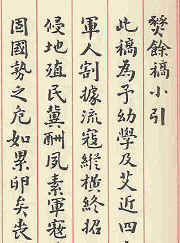 燹餘稿小引
此稿為予幼學及艾近四
軍人割據流寇縱橫終招
侵地殖民冀酬夙素軍寇
固國勢之危如累卵矣喪